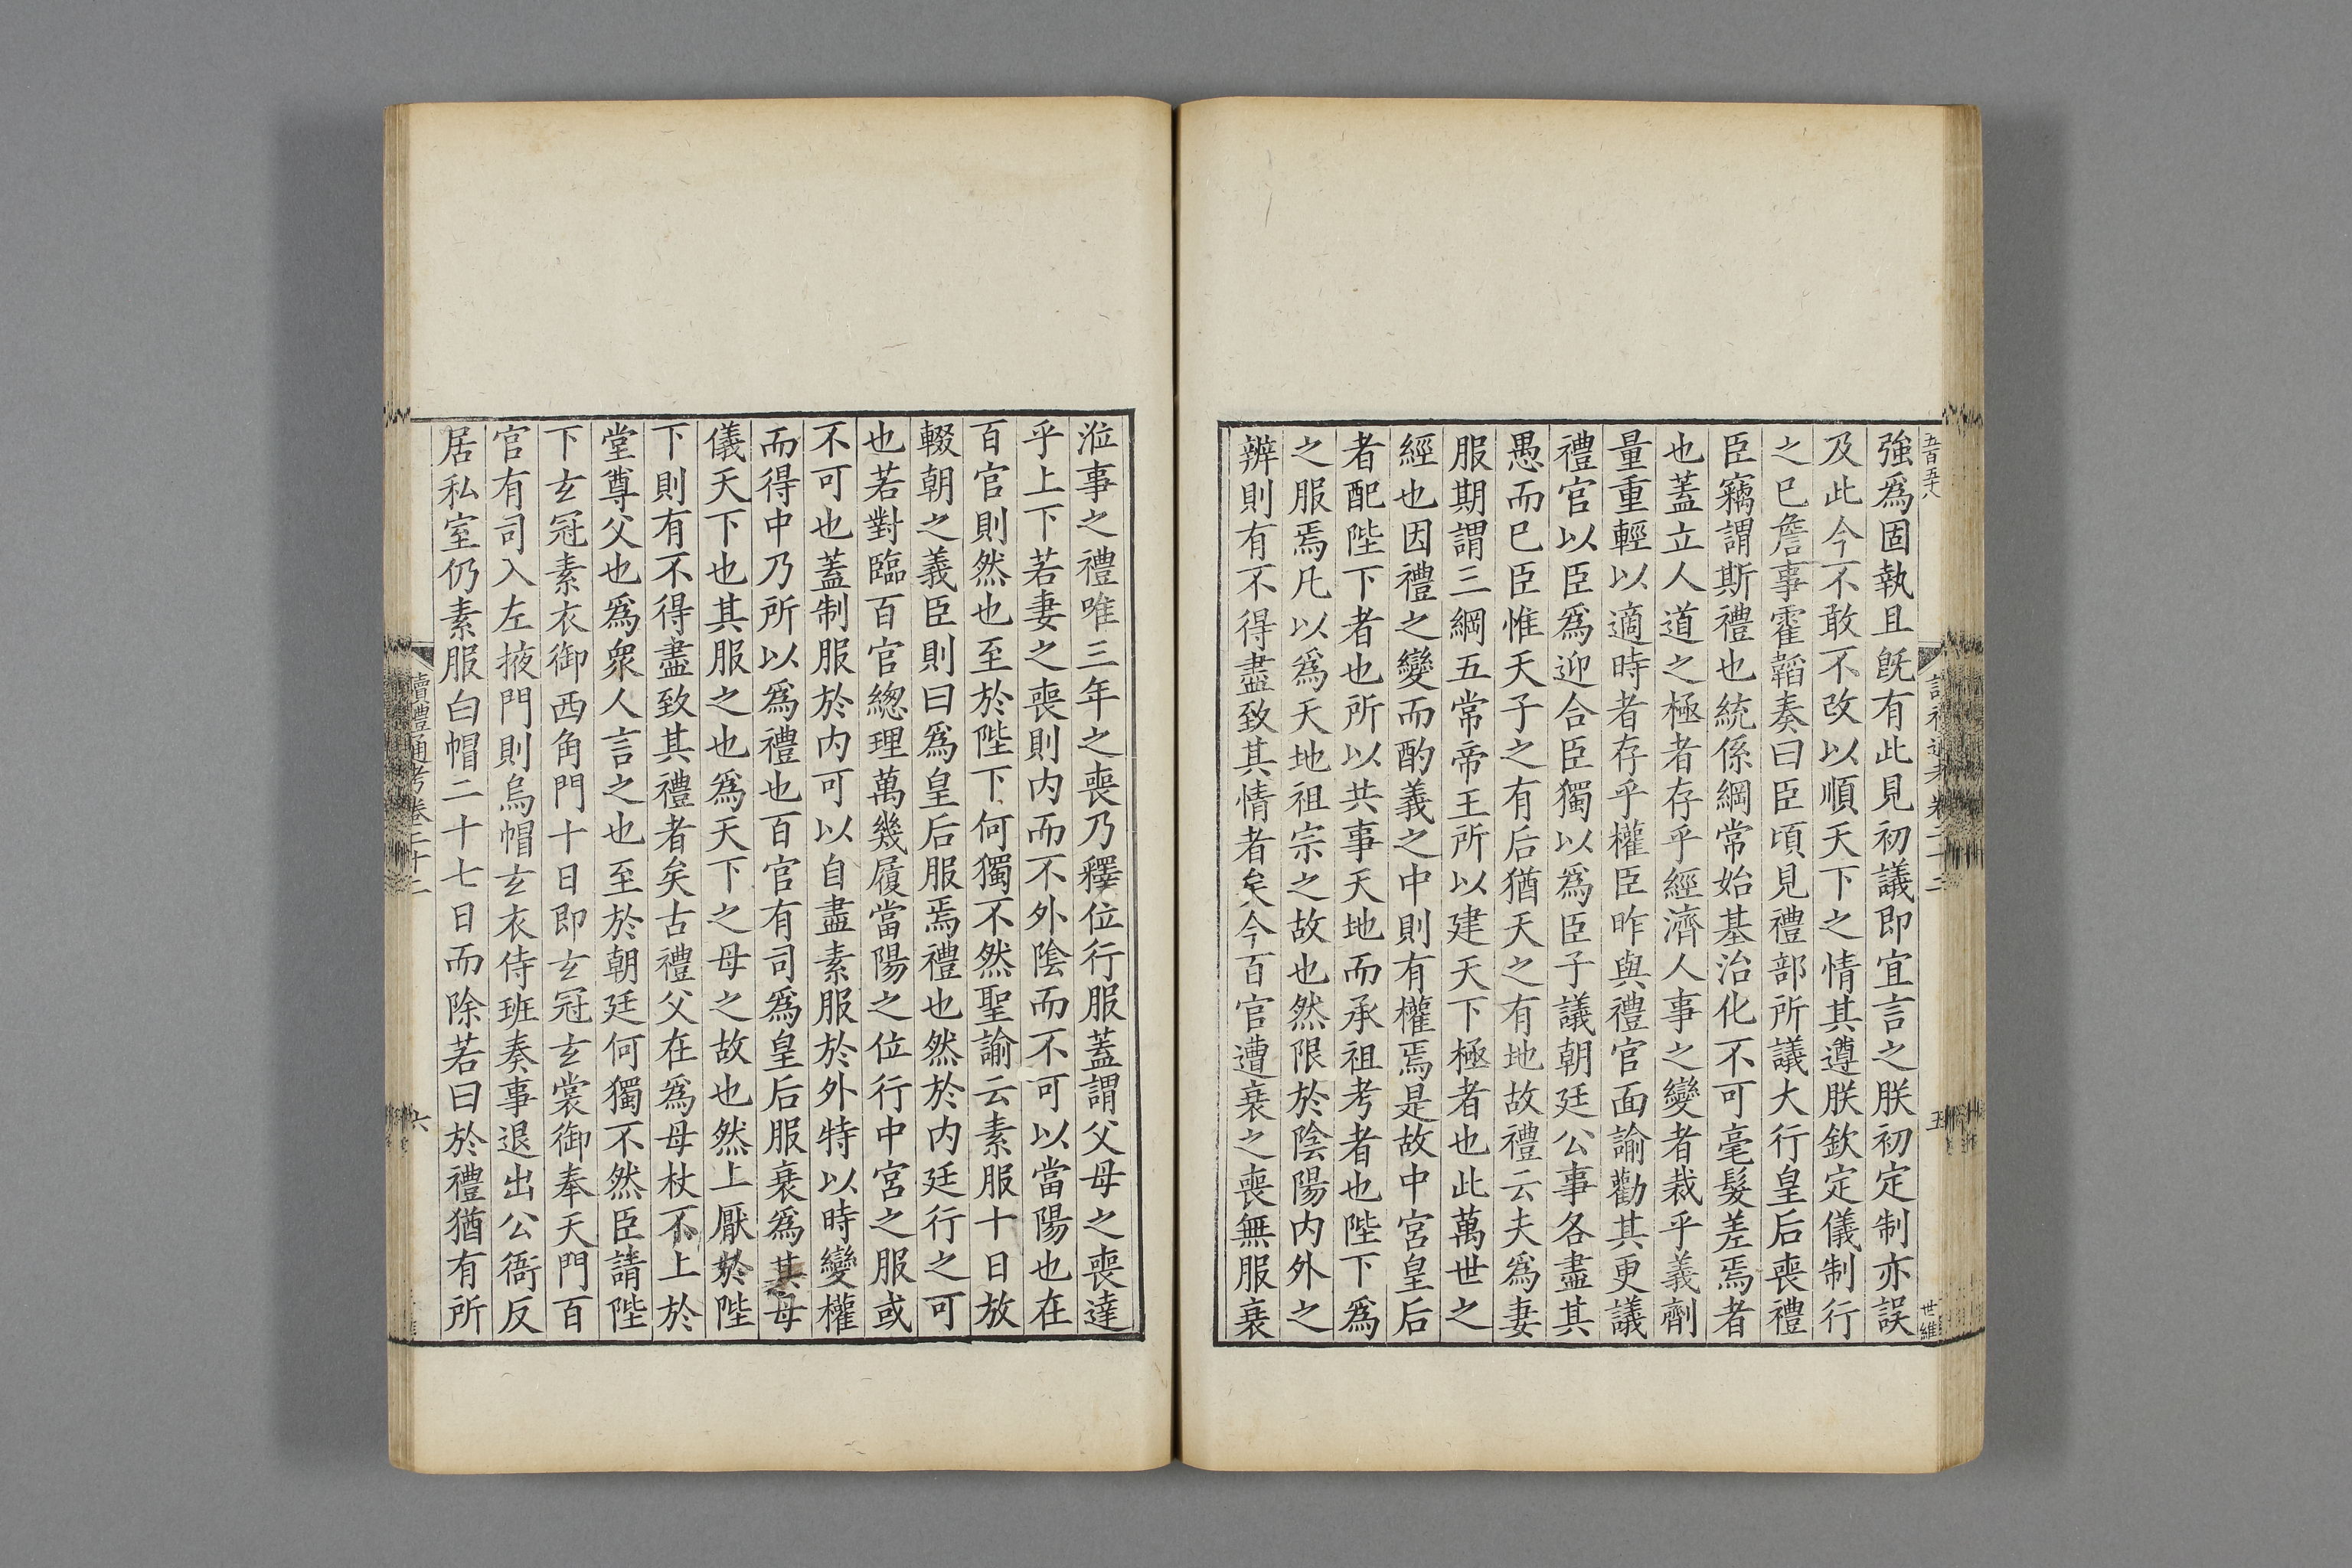 五百五十八
強爲固執且旣有此見初議即宜言之朕初定制亦誤
及此今不敢不改以順天下之情其遵朕欽定儀制行
之已詹事霍韜奏曰臣頃見禮部所議大行皇后喪禮
臣竊謂斯禮也統係綱常始基治化不可毫髮差焉者
也蓋立人道之極者存乎經濟人事之變者裁乎義劑
量重輕以適時者存乎權臣昨與禮官面諭勸其更議
禮官以臣爲迎合臣獨以爲臣子議朝廷公事各盡其
愚而已臣惟天子之有后猶天之有地故禮云夫爲妻
服期謂三綱五常帝王所以建天下極者也此萬世之
經也因禮之變而酌義之中則有權焉是故中宮皇后
者配陛下者也所以共事天地而承祖考者也陛下爲
之服焉凡以爲天地祖宗之故也然限於陰陽内外之
辨則有不得盡致其情者矣今百官遭衰之喪無服衰
五
世維
涖事之禮唯三年之喪乃釋位行服蓋謂父母之喪達
乎上下若妻之喪則内而不外陰而不可以當陽也在
百官則然也至於陛下何獨不然聖諭云素服十日放
輟朝之義臣則曰爲皇后服焉禮也然於内廷行之可
也若對臨百官總理萬幾履當陽之位行中宮之服或
不可也蓋制服於内可以自盡素服於外特以時變權
而得中乃所以爲禮也百官有司爲皇后服衰爲其母
儀天下也其服之也爲天下之母之故也然上厭於陛
下則有不得盡致其禮者矣古禮父在爲母杖不上於
堂尊父也爲衆人言之也至於朝廷何獨不然臣請陛
下玄冠素衣御西角門十日即玄冠玄裳御奉天門百
官有司入左掖門則烏帽玄衣侍班奏事退出公衙反
居私室仍素服白帽二十七日而除若曰於禮猶有所
讀禮通考卷二十二
六